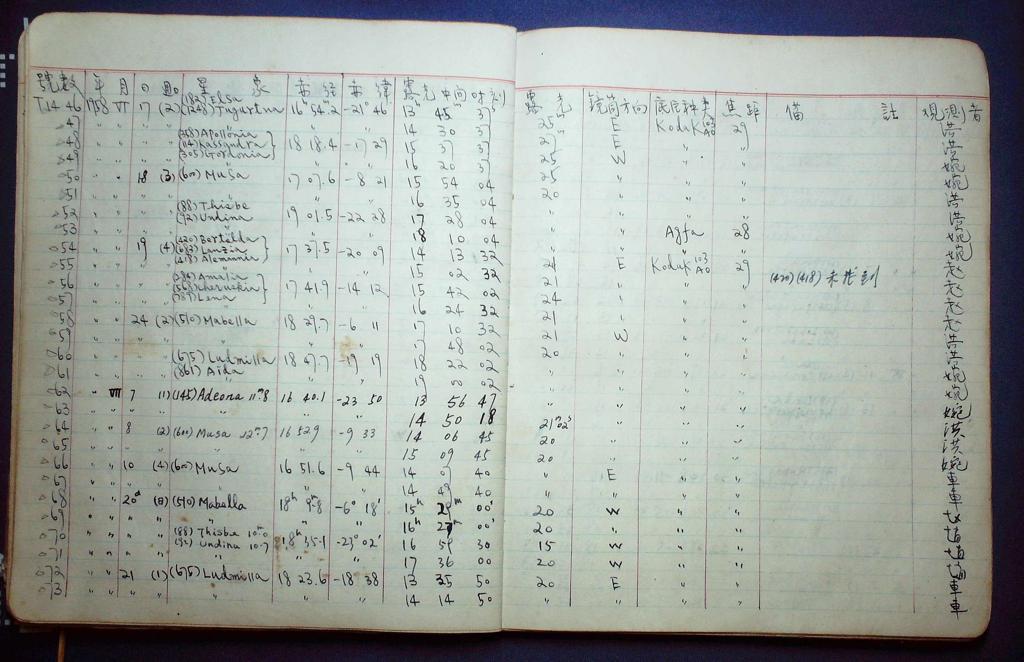 號數 年 月 日 星象 赤經 赤緯 露光中間時刻 露光 鏡筒方向 底片種類 焦距 備註 觀測者
(182) Elsa
T1446 1958 VI 17 (2) (1248) Jugurtha 16ʰ 54.ᵐ2 -21° 46' 13ʰ 45ᵐ 37ˢ 25ᵐ E Kodak 103 AO 29 洪
47 " " " " " 14 30 37 27 E " " 洪
(358) Apollonia
48 " " " (114) Kassandra 18 18.4 -17 29 15 37 37 25 W " " 婉
(305) Gordonia
49 " " " " " 16 20 37 25 " " " 婉
50 " " 18 (3) (600) Musa 17 07.6 -8 21 15 54 04 20 " " " 洪
51 " " " " " 16 35 04 " " " " 洪
(88) Thisbe
52 " " " (92) Undina 19 01.5 -22 28 17 28 04 " " " " 婉
53 " " " " " 18 10 04 " " Agfa 28 婉
(420) Bertolda
54 " " 19 (4) (683) Lanzia 17 37.5 -20 09 14 13 32 24 E Kodak 103 AO 29 (420)(418) 未找到
(418) Alemannia
55 " " " " " 15 02 32 21 " " "
(284) Amalia
56 " " " (568) Cheruskia 17 41.9 -14 12 15 42 02 24 " " "
(789) Lena
57 " " " " " 16 24 32 21 " " "
58 " " 24 (2) (510) Mabella 18 29.7 -6 11 17 10 32 21 W " " 洪
59 " " " " " 17 48 02 20 " " " 洪
(675) Ludmilla
60 " " " (861) Aida 18 47.7 -19 19 18 22 02 " " " " 婉
61 " " " " " 19 00 02 " " " " 婉
62 " VII 7 (1) (145) Adeona 11ᵐ8 16 40.1 -23 50 13 56 47 " " " " 婉
63 " " " " " 14 50 18 21ᵐ02ˢ " " " 洪
64 " " 8 (2) (600) Musa 12ᵐ7 16 52.9 -9 33 14 06 45 20 " " " 洪
65 " " " " " 15 09 45 20 " " " 婉
66 " " 10 (4) (600) Musa 16 51.6 -9 44 14 07 40 " E " " 車
67 " " " " " 14 49 40 " " " " 車
68 " " 20ᵈ (8) (510) Mabella 18ʰ 9.ᵐ8 -6° 18' 15ʰ 29ᵐ 00ˢ 20 W " "
69 " " " " " 16ʰ 27ᵐ 00ˢ 20 " " "
(88) Thisbe 10.ᵐ0
70 " " " (92) Undina 10.7 18ʰ 35.1 -23° 02' 16 59 30 15 W " "
71 " " " " " 17 36 00 20 W " "
72 " " 21 (1) (675) Ludmilla 18 23.6 -18 38 13 35 50 20 E " " 車
73 " " " " " 14 14 50 " " " " 車